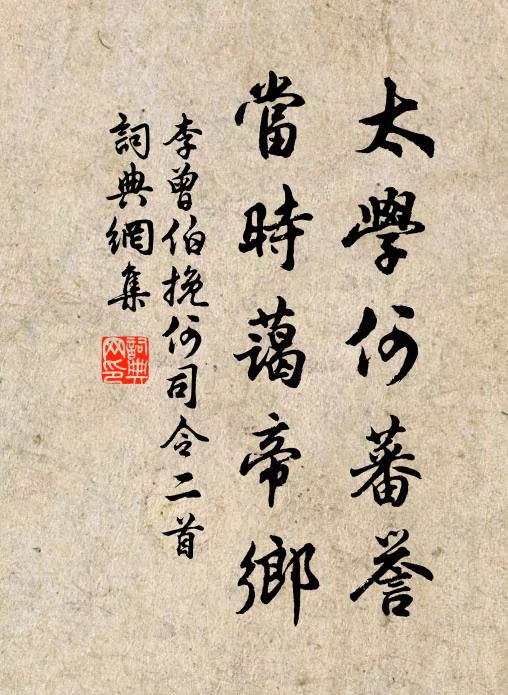 太學何蕃譽
當時藹帝鄉
李曾伯挽何司令二首
詞典網集
詞典網印